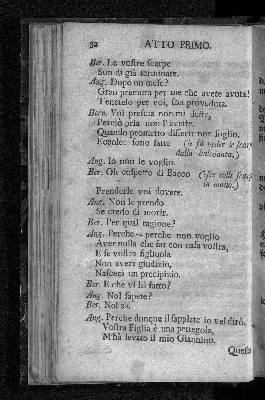 32 ATTO PRIMO.
Ber. Le vostre scarpe
Son di già terminate.
Ang. Dopo un mese?
Gran premura per me che avete avuta!
Tenetelo per voi, son proveduta.
Bern. Voi prescia non mi deste,
Perciò pria non l'aveste.
Quando prometto disserir non soglio.
Eccole: sono fatte (le fà veder le scar
dalla
Ang. Io non le voglio.
Ber. Oh cospetto di Bacco (esce colle scar
in mano.)
Prenderle voi dovete.
Ang. Non le prendo
Se credo di morir.
Ber. Per qual ragione?
Ang. Perche -- perche non voglio
Aver nulla che far con casa vostra,
E se vostra figliuola
Non averà giudizio,
Nascerà un precipizio.
Ber. E che vi hà fatto?
Ang. Nol sapete?
Ber. Nol so.
Ang. Perche dunque il sappiate io vel dirò.
Vostra Figlia è una pettegola,
M'hà levato il mio Giannino.
Questa